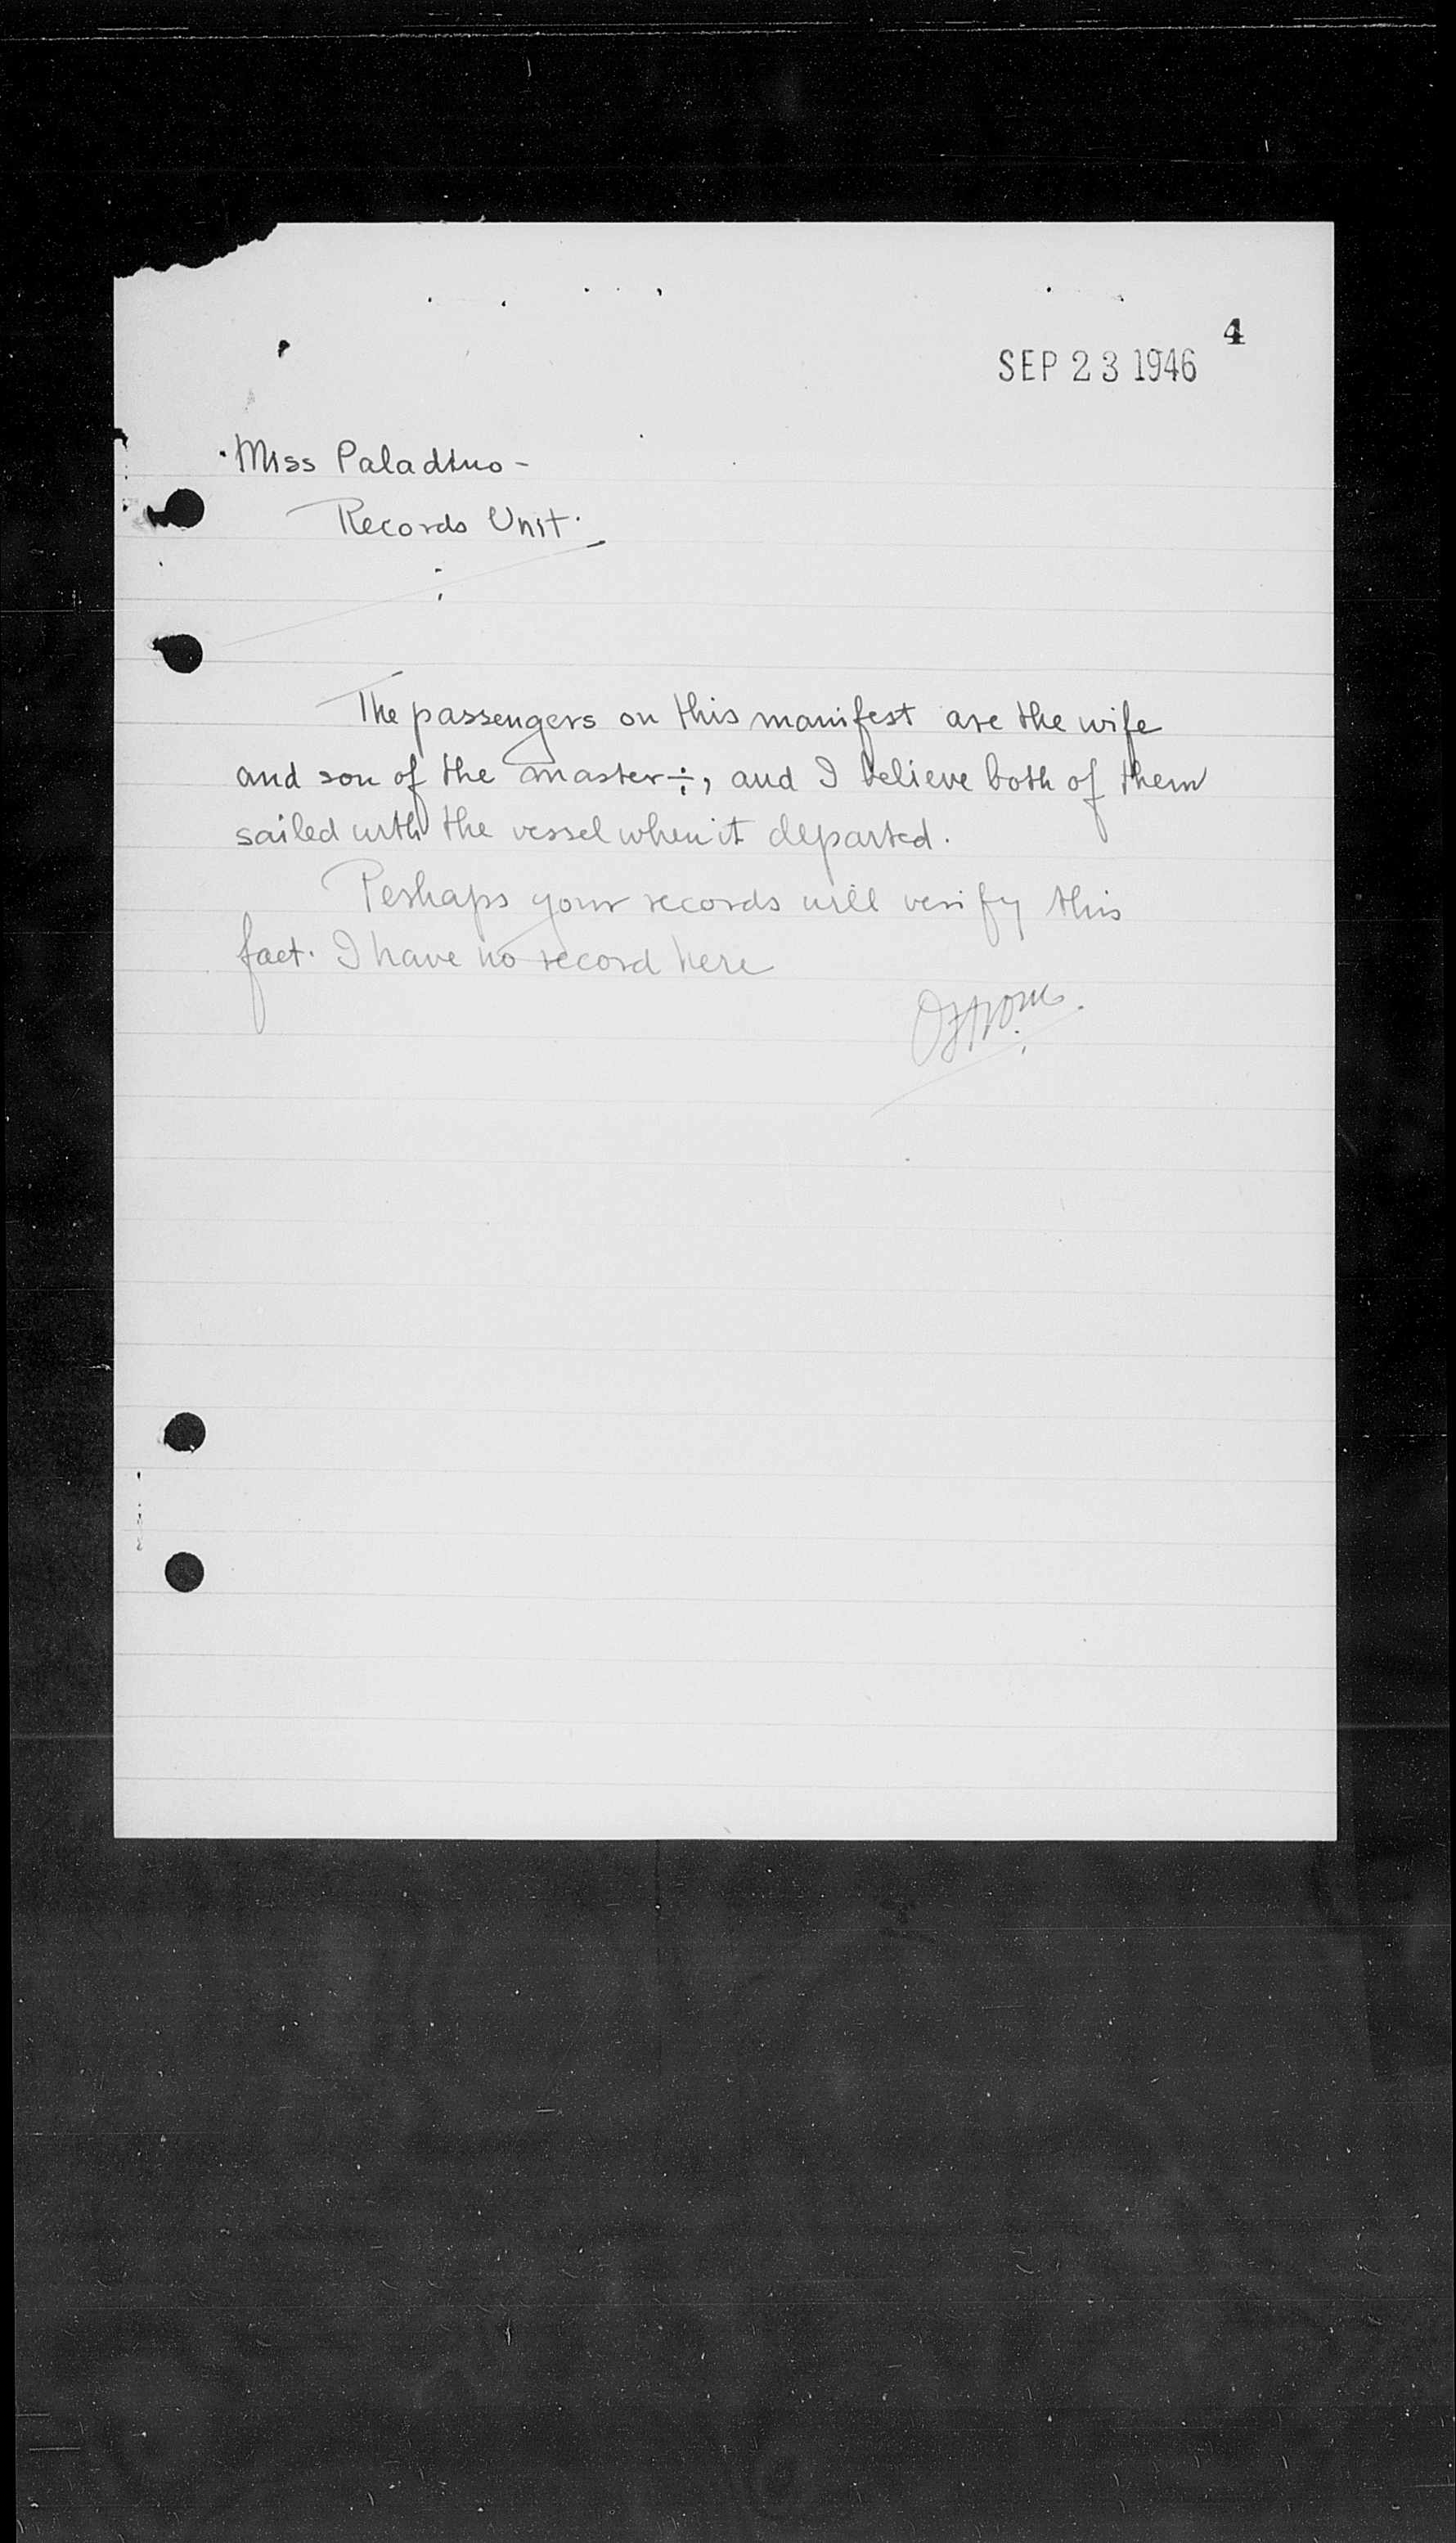 4
SEP 23 1946
Miss Paladino -
Records Unit.
The passengers on this manifest are the wife
and son of the master -, and I believe both of them
sailed with the vessel when it departed.
Perhaps your records will verify this
fact. I have no record here